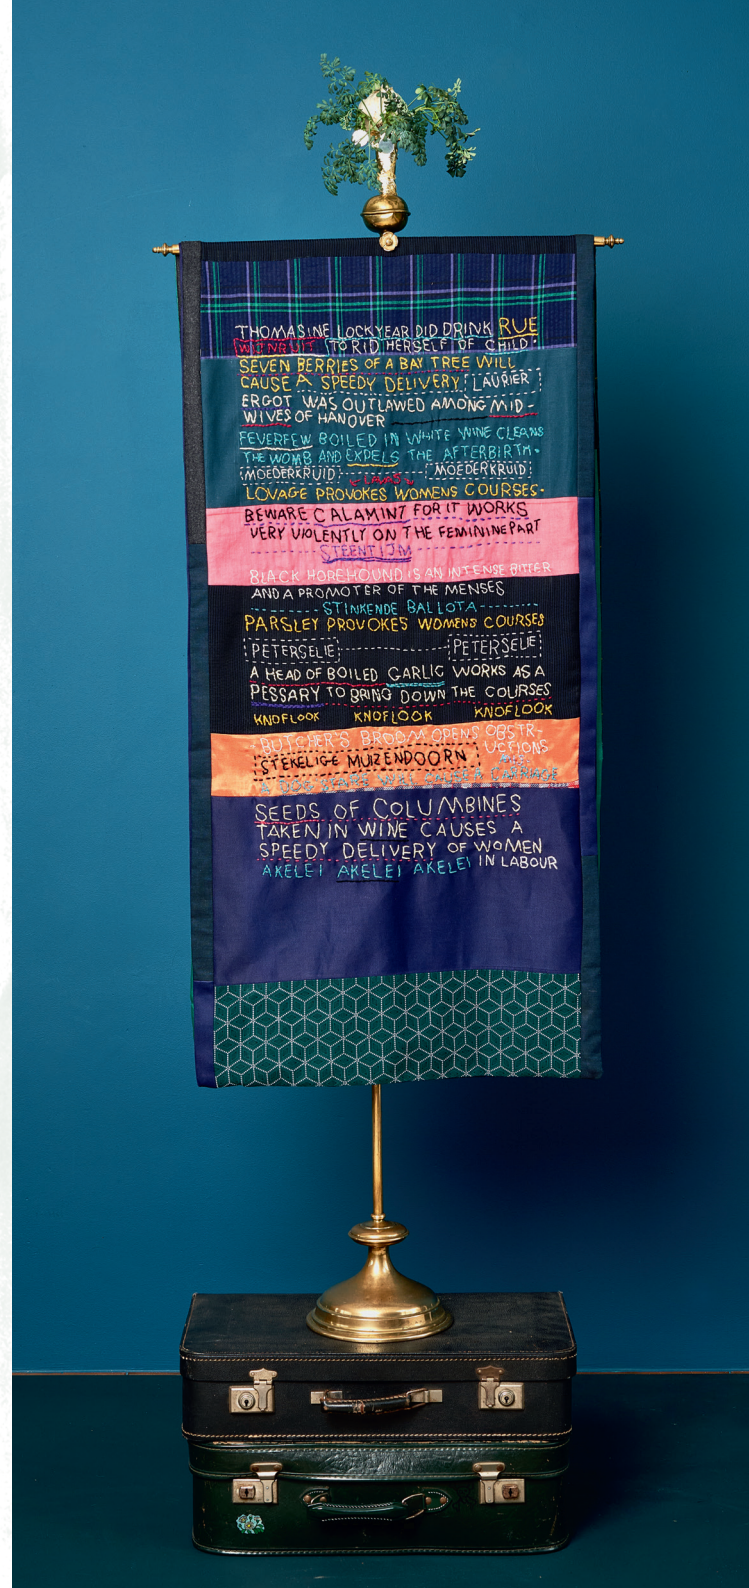 THOMASINE LOCKYEAR DID DRINK RUE
WIJNRUIT TO RID HERSELF OF CHILD.
SEVEN BERRIES OF A BAY TREE WILL
CAUSE A SPEEDY DELIVERY. LAURIER
ERGOT WAS OUTLAWED AMONG MID-
WIVES OF HANOVER
FEVERFEW BOILED IN WHITE WINE CLEANS
THE WOMB AND EXPELS THE AFTERBIRTH.
MOEDERKRUID MOEDERKRUID
LAVAS
LOVAGE PROVOKES WOMENS COURSES.
BEWARE CALAMINT FOR IT WORKS
VERY VIOLENTLY ON THE FEMININE PART
STEENTIJM
BLACK HOREHOUND IS AN INTENSE BITTER
AND A PROMOTER OF THE MENSES
STINKENDE BALLOTA
PARSLEY PROVOKES WOMENS COURSES
PETERSELIE PETERSELIE
A HEAD OF BOILED GARLIC WORKS AS A
PESSARY TO BRING DOWN THE COURSES
KNOFLOOK KNOFLOOK KNOFLOOK
BUTCHER'S BROOM OPENS OBSTR-
UCTIONS
STEKELIGE MUIZENDOORN
A DOG STARE WILL CAUSE A CARRIAGE
SEEDS OF COLUMBINES
TAKEN IN WINE CAUSES A
SPEEDY DELIVERY OF WOMEN
IN LABOUR
AKELEI AKELEI AKELEI